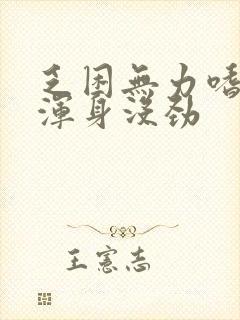 乏困無力嗜
渾身沒勁
王憲志